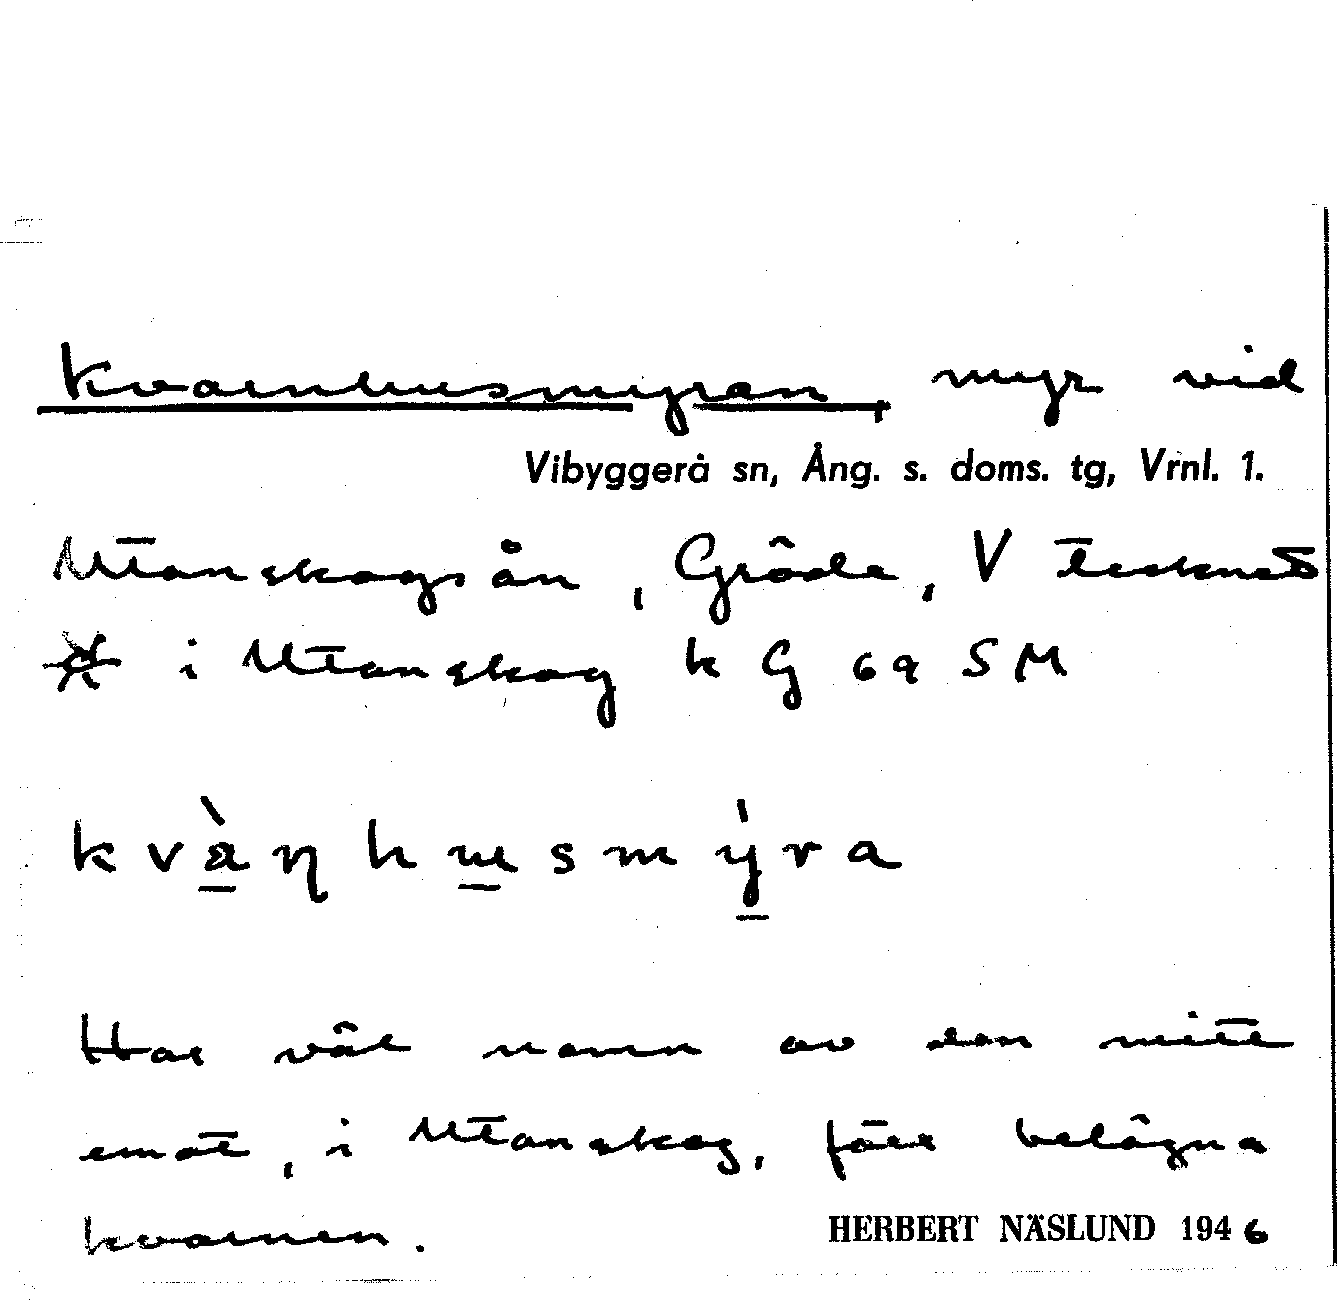 Kvarnhusmyran, myr vid
Vibyggerå sn, Ång. s. doms. tg, Vrnl. 1.
Utanskogsån, Gräde, V tecknet
i Utanskog k G 69 SM
kvàṇhusmýra
Har väl namn av den mitt
emot, i Utanskog, förr belägna
kvarnen.
HERBERT NÄSLUND 1946